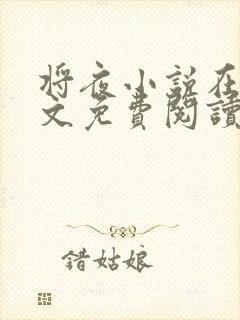 将夜小説在
文免費閱讀
錯姑娘